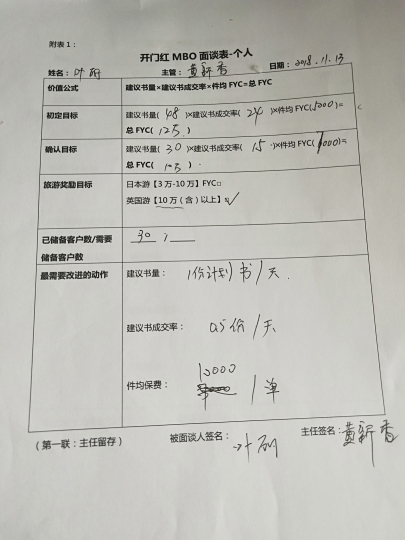 附表1：
开门红MBO面谈表-个人
姓名：叶研 主管：黄新香 日期：2018.11.13
价值公式 建议书量×建议书成交率×件均FYC=总FYC
初定目标 建议书量(48)×建议书成交率(24)×件均FYC(5000)=
总FYC(12万)
确认目标 建议书量(30)×建议书成交率(15)×件均FYC(7000)=
总FYC(10万)
旅游奖励目标 日本游【3万-10万】FYC□
英国游【10万（含）以上】✓
已储备客户数/需要
储备客户数 30 /
最需要改进的动作 建议书量： 1份计划书/天.
建议书成交率： 0.5份/天
件均保费： 10000
/单
（第一联：主任留存） 被面谈人签名：叶研 主任签名：黄新香